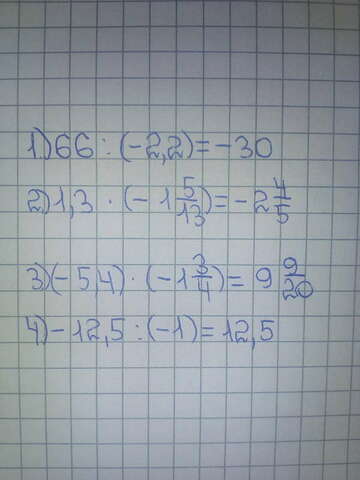 1) 66 : (-2,2) = -30
2) 1,3 · (-1 5/13) = -2 4/5
3) (-5,4) · (-1 3/4) = 9 9/20
4) -12,5 : (-1) = 12,5